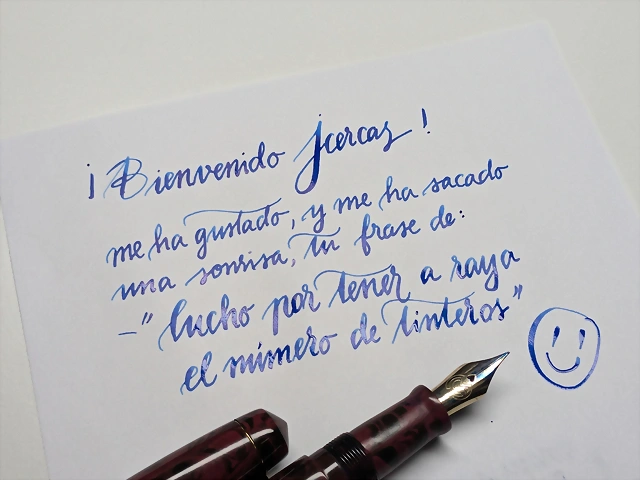 ¡Bienvenido Jcercas!
me ha gustado, y me ha sacado
una sonrisa, tu frase de:
–"lucho por tener a raya
el número de tinteros"